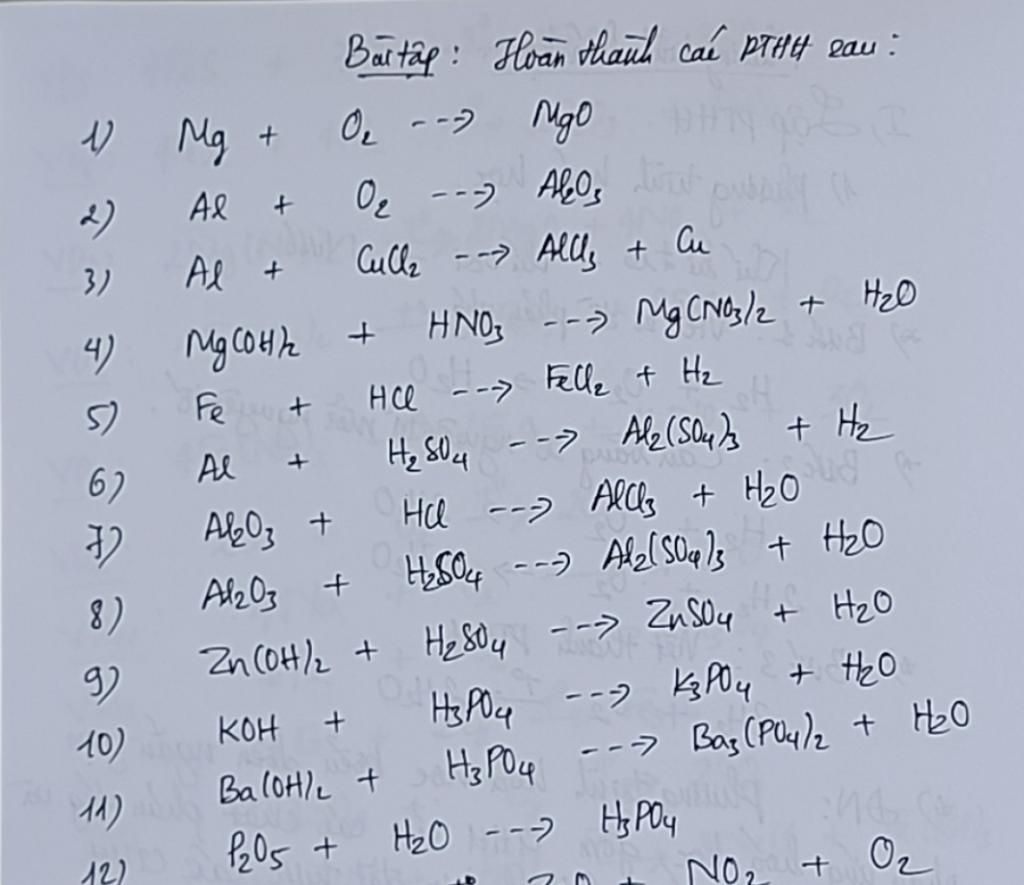 Bài tập : Hoàn thành các PTHH sau :
1) Mg + O2 ---> MgO
2) Al + O2 ---> Al2O3
3) Al + CuCl2 ---> AlCl3 + Cu
4) Mg(OH)2 + HNO3 ---> Mg(NO3)2 + H2O
5) Fe + HCl ---> FeCl2 + H2
6) Al + H2SO4 ---> Al2(SO4)3 + H2
7) Al2O3 + HCl ---> AlCl3 + H2O
8) Al2O3 + H2SO4 ---> Al2(SO4)3 + H2O
9) Zn(OH)2 + H2SO4 ---> ZnSO4 + H2O
10) KOH + H3PO4 ---> K3PO4 + H2O
11) Ba(OH)2 + H3PO4 ---> Ba3(PO4)2 + H2O
12) P2O5 + H2O ---> H3PO4
+ NO2 + O2